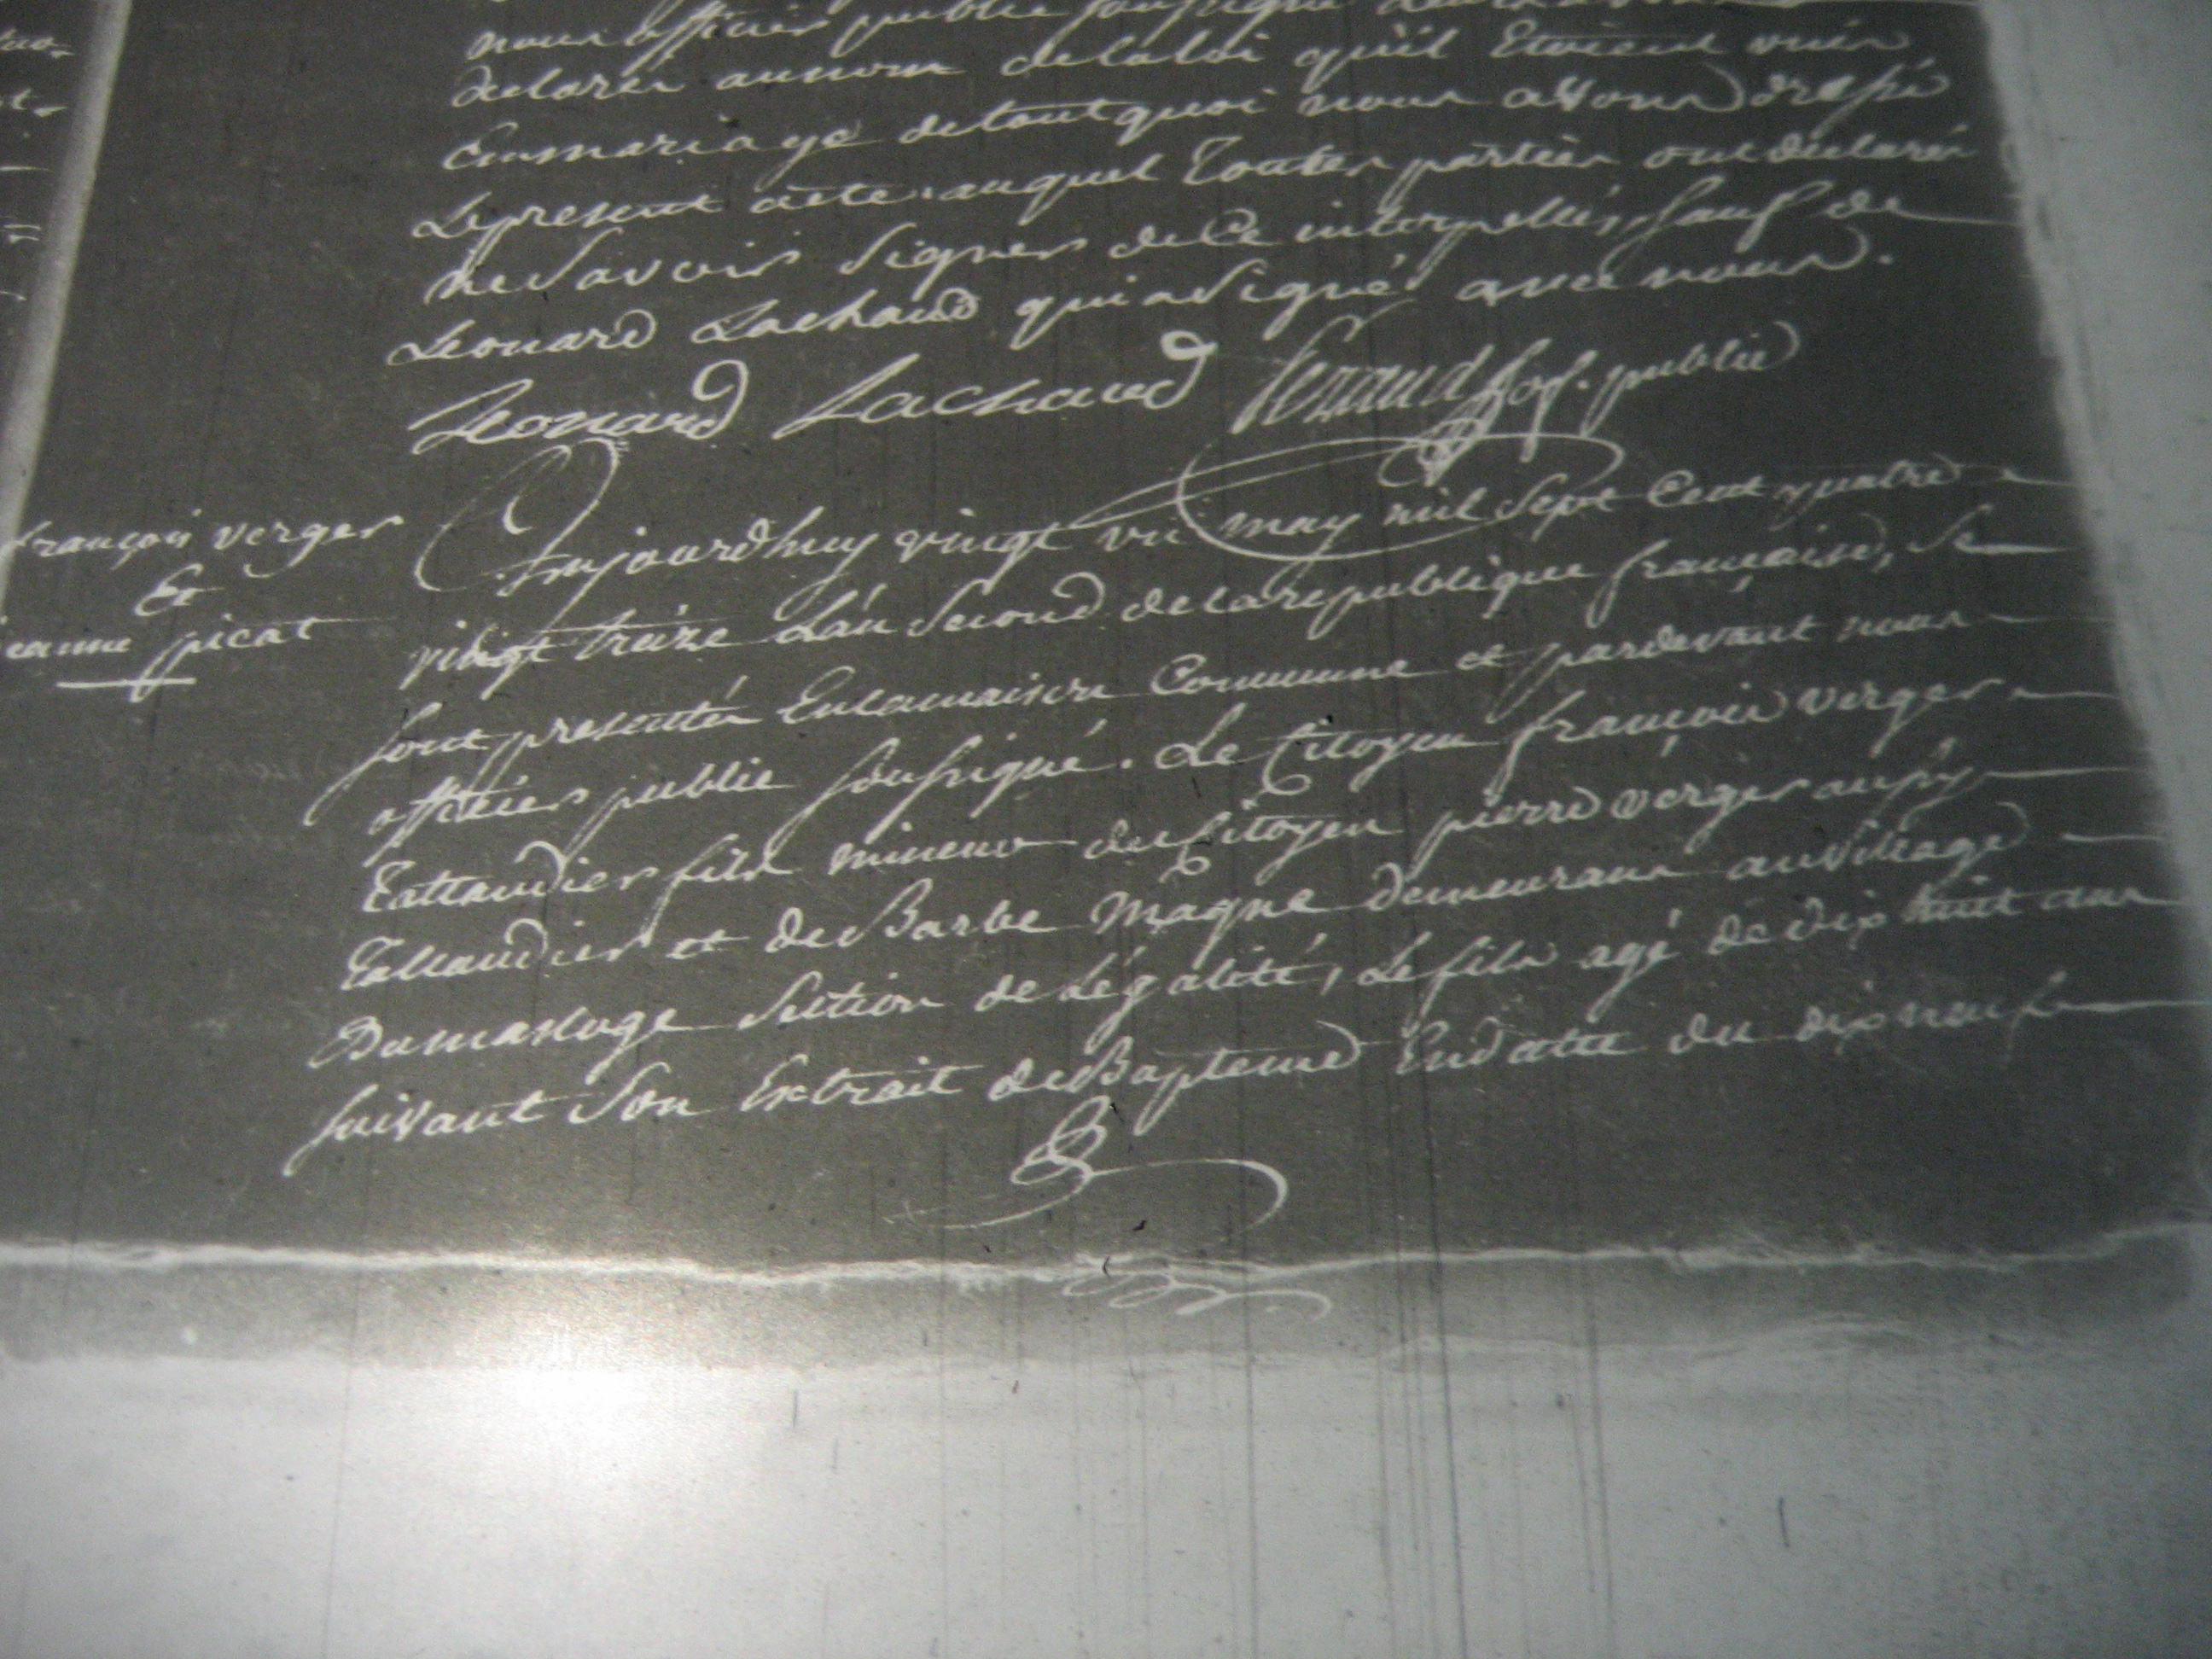 nous officier public soussigné
declaré au nom de la loi qu'il Etoient unis
En mariage de tout quoi nous avons dressé
Le present acte auquel Toutes parties ont declarés
ne Savoir Signer de Ce interpellés, sauf de
Leonard Lachaud qui a Signé avec nous.
Leonard Lachaud off. public
françois verger
Et
jeanne picat
Aujourdhuy vingt un may mil Sept Cent quatre
vingt treize L'an Second de la republique française, Se
Sont presentés En la maison Commune et pardevant nous
officier public soussigné. Le Citoyen françois verger
Tallaudier fils mineur du Citoyen pierre verger aussy
Tallaudier et de Barbe Magne demeurans au village
Dumasloge Section de Légalité, Le fils agé de dix huit ans
suivant Son Extrait de Bapteme En datte du dix neuf